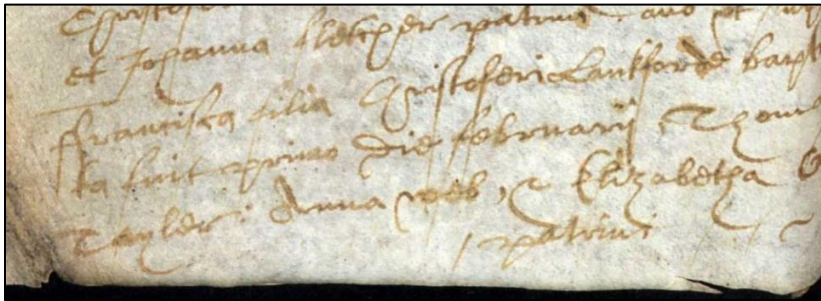 et Johanna fletcher patrini
ffrancisca filia Cristoferi Lankforde bapt
ta fuit primo die februarij Thom
Tayler: Anna web, & Elizabetha
patrini